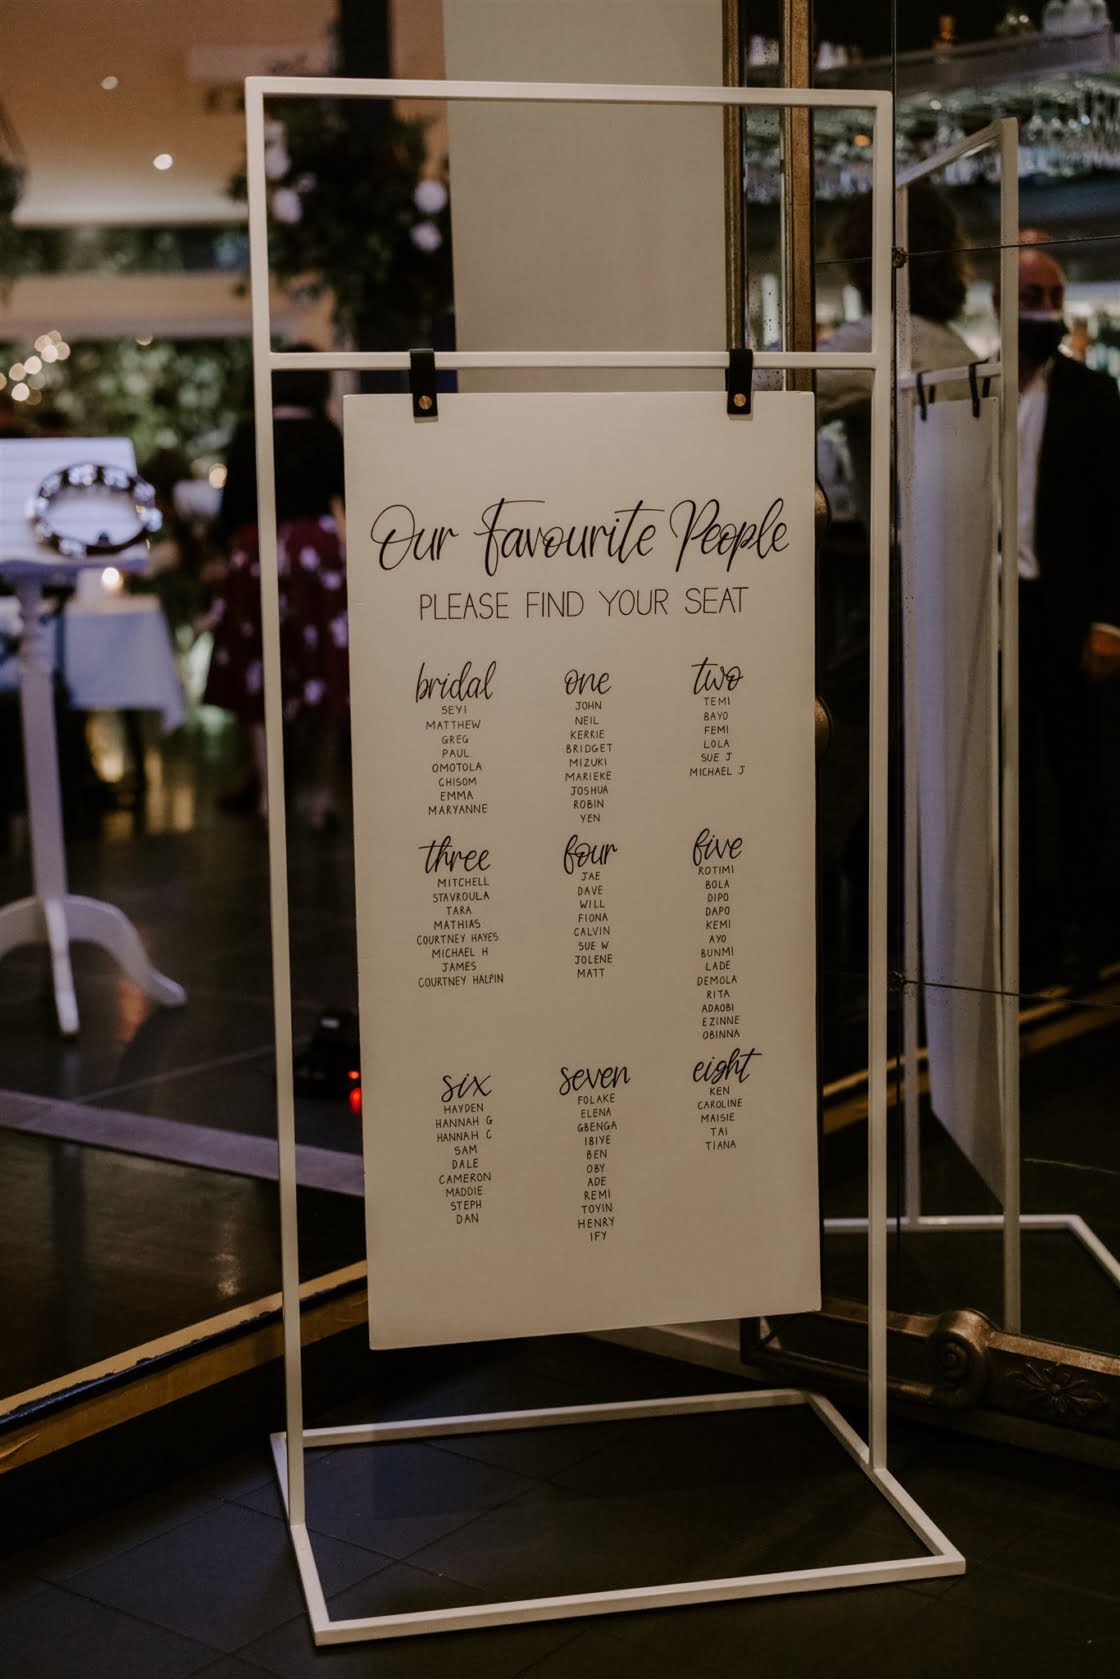 Our Favourite People
PLEASE FIND YOUR SEAT
bridal
SEYI
MATTHEW
GREG
PAUL
OMOTOLA
CHISOM
EMMA
MARYANNE
one
JOHN
NEIL
KERRIE
BRIDGET
MIZUKI
MARIEKE
JOSHUA
ROBIN
YEN
two
TEMI
BAYO
FEMI
LOLA
SUE J
MICHAEL J
three
MITCHELL
STAVROULA
TARA
MATHIAS
COURTNEY HAYES
MICHAEL H
JAMES
COURTNEY HALPIN
four
JAE
DAVE
WILL
FIONA
CALVIN
SUE W
JOLENE
MATT
five
ROTIMI
BOLA
DIPO
DAPO
KEMI
AYO
BUNMI
LADE
DEMOLA
RITA
ADAOBI
EZINNE
OBINNA
six
HAYDEN
HANNAH G
HANNAH C
SAM
DALE
CAMERON
MADDIE
STEPH
DAN
seven
FOLAKE
ELENA
GBENGA
IBIYE
BEN
OBY
ADE
REMI
TOYIN
HENRY
IFY
eight
KEN
CAROLINE
MAISIE
TAI
TIANA